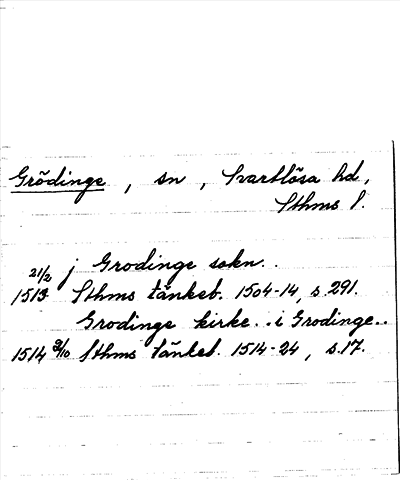 Grödinge, sn, Svartlösa hd,
Sthms l.
j Grodinge sokn..
1513 21/2 Sthms tänkeb. 1504-14, s.291.
Grodinge kirke..i Grodinge..
1514 9/10 Sthms tänkeb. 1514-24, s.17.